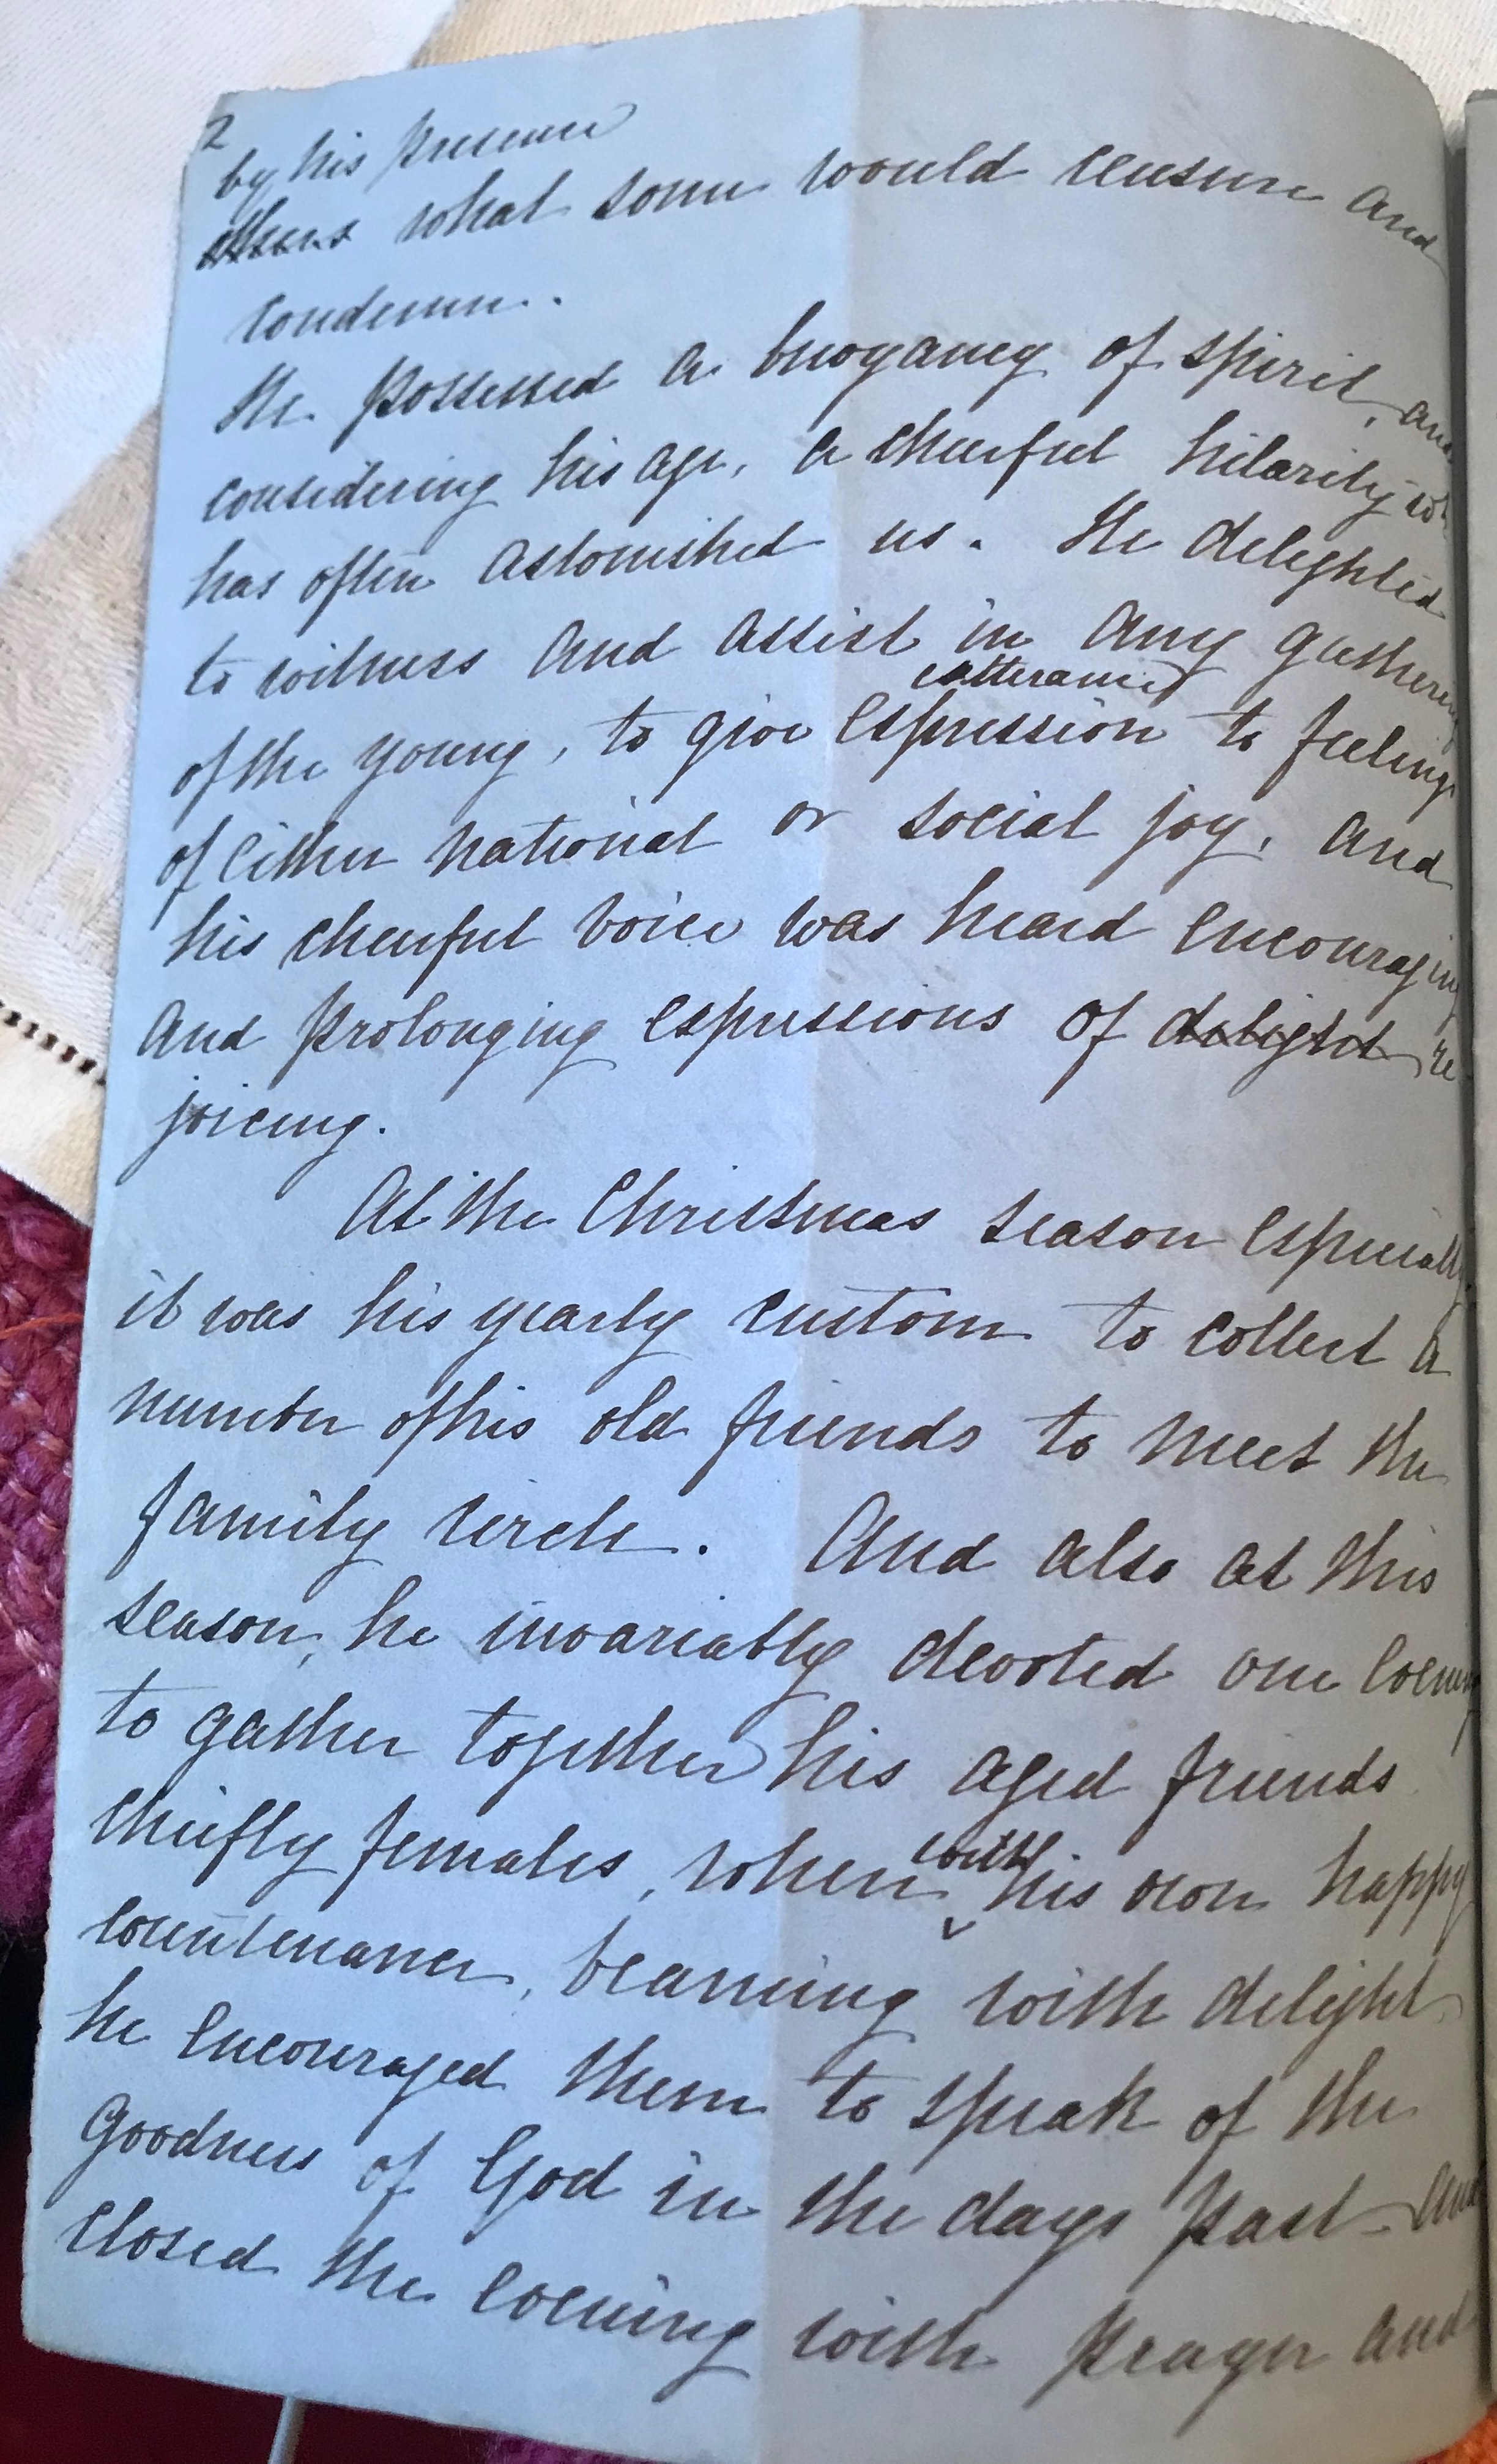 2
by his presence
what some would censure and
condemn.
He possessed a buoyancy of spirit, and
considering his age, a cheerful hilarity
has often astonished us. He delighted
to witness and assist in any gathering
utterance
of the young, to give expression to feelings
of either national or social joy, and
his cheerful voice was heard encouraging
and prolonging expressions of delight re
joicing.
At the Christmas season especially
it was his yearly custom to collect a
number of his old friends to meet the
family circle. And also at this
season, he invariably devoted one evening
to gather together his aged friends
with
chiefly females, when his own happy
countenance, beaming with delight
he encouraged them to speak of the
Goodness of God in the days past and
closed the evening with prayer and